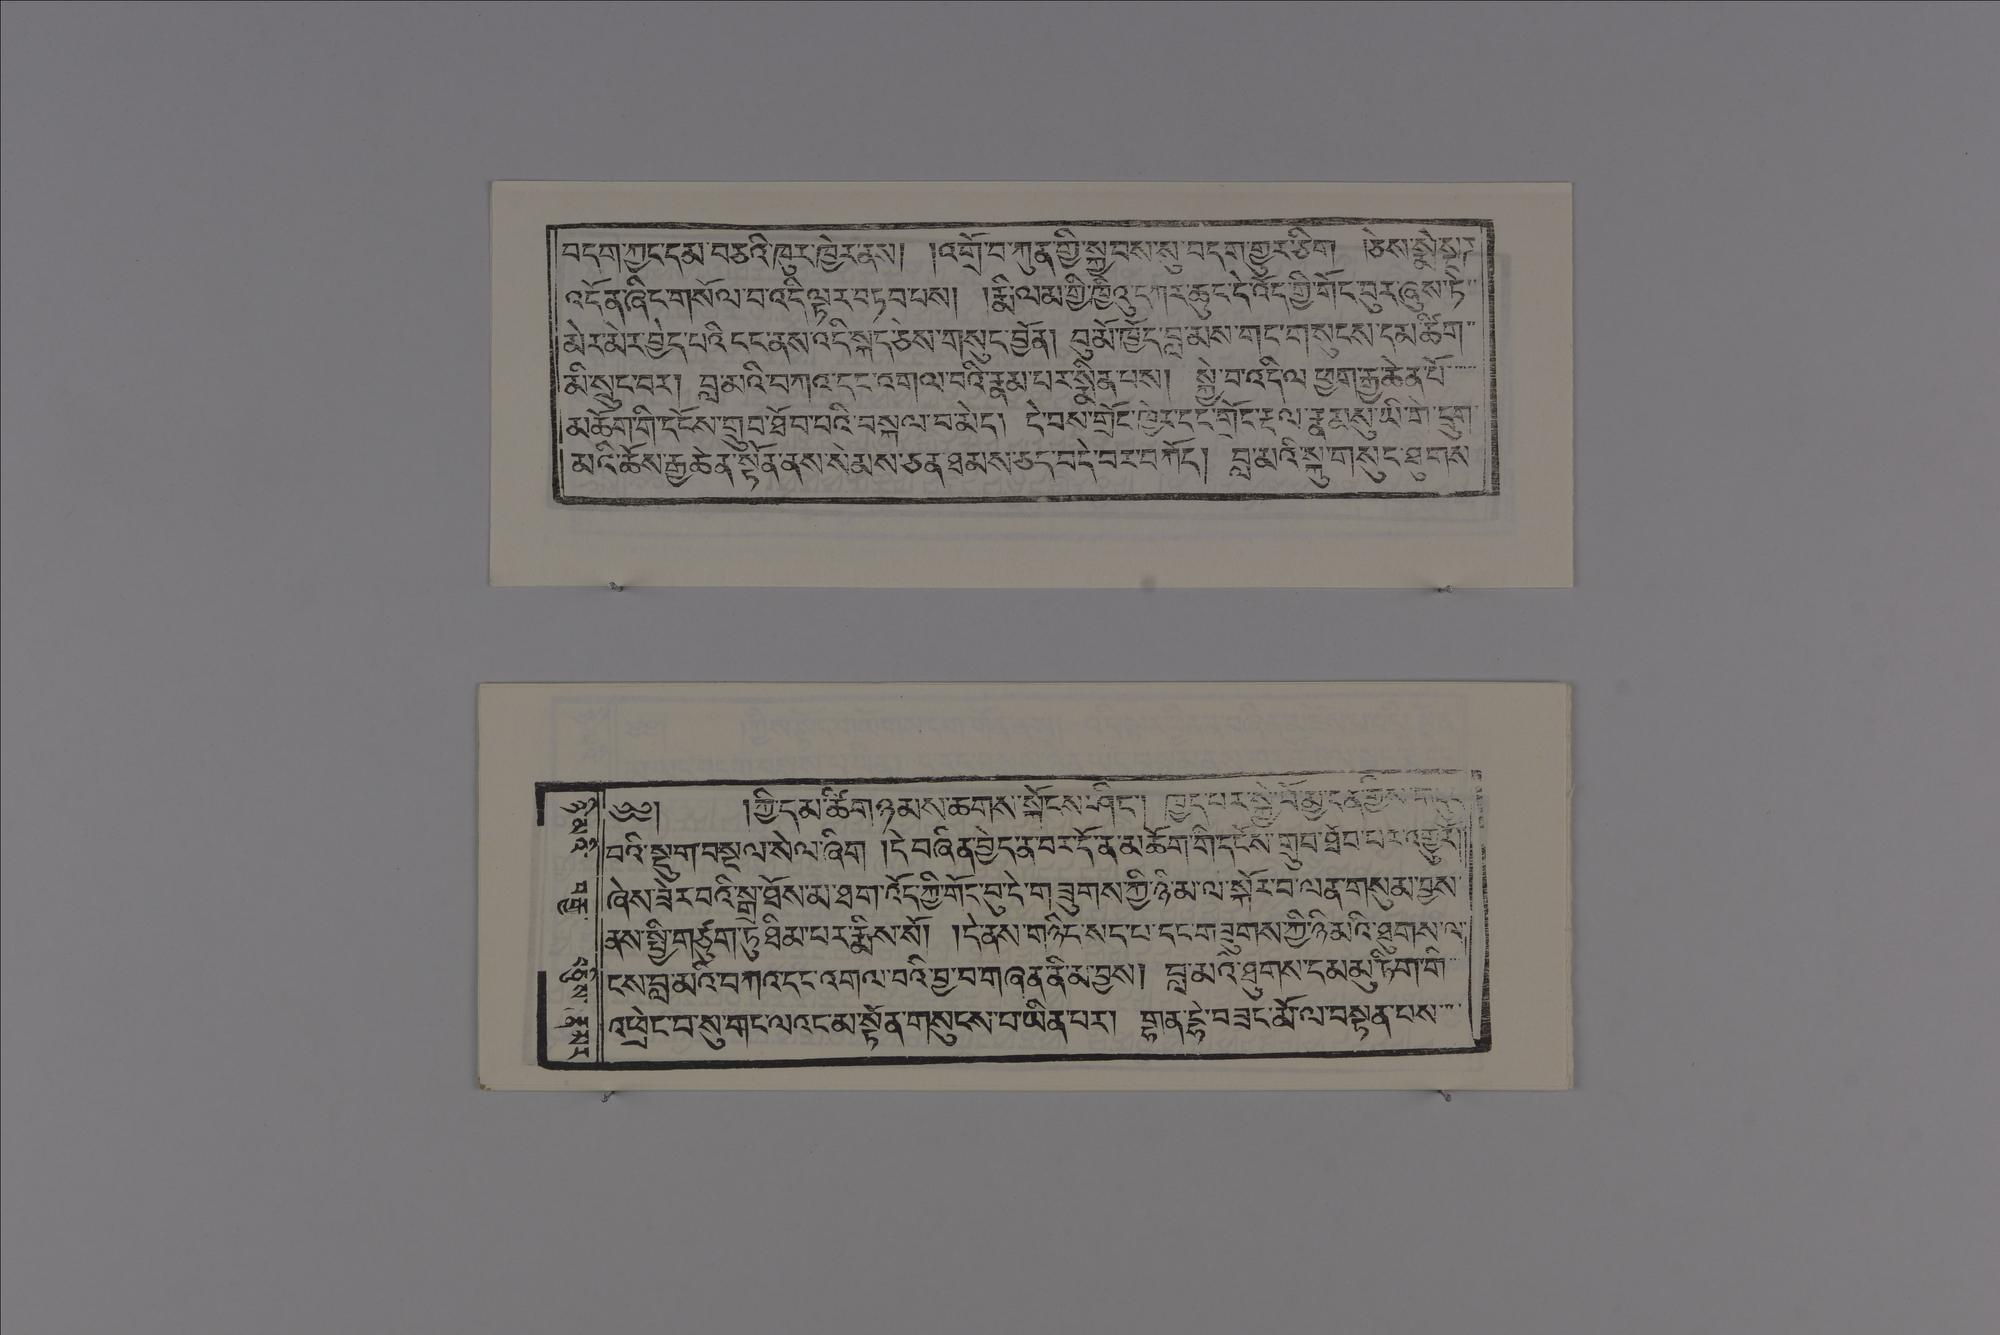 བདག་ཀྱང་དམ་བཅའི་ཁུར་ཁྱེར་ནས། །འགྲོ་བ་ཀུན་གྱི་སྐྱབས་སུ་བདག་གྱུར་ཅིག །ཅེས་སྨྲེ་སྔགས་
འདོན་ཞིང་གསོལ་བ་འདི་ལྟར་བཏབ་པས། །རྨི་ལམ་གྱི་ཁྱིའུ་དཀར་ཆུང་དེ་འོད་ཀྱི་གོང་བུར་ཞུས་ཏེ་
མེར་མེར་བྱེད་པའི་ངང་ནས་འདི་སྐད་ཅེས་གསུང་བྱོན། བུ་མོ་ཁྱོད་བླ་མས་གང་གསུངས་དམ་ཚིག་
མི་སྲུང་བར། བླ་མའི་བཀའ་དང་འགལ་བའི་རྣམ་པར་སྨིན་པས། སྐྱེ་བ་འདི་ལ་ཕྱག་རྒྱ་ཆེན་པོ་
མཆོག་གི་དངོས་གྲུབ་ཐོབ་པའི་བསྐལ་བ་མེད། དེ་བས་གྲོང་ཁྱེར་དང་གྲོང་རྡལ་རྣམས་སུ་ཡི་གེ་དྲུག་
མའི་ཆོས་རྒྱ་ཆེན་སྟོན་ནས་སེམས་ཅན་ཐམས་ཅད་བདེ་བར་བཀོད། བླ་མའི་སྐུ་གསུང་ཐུགས་
༄༅། །ཀྱི་དམ་ཚིག་ཉམས་ཆགས་སྐོངས་ཤིང་། ཁྱད་པར་སྐྱེ་བོ་མྱ་ངན་གྱིས་
བའི་སྡུག་བསྔལ་སེལ་ཞིག །དེ་བཞིན་བྱེད་ན་བར་དོན་མཆོག་གི་དངོས་གྲུབ་ཐོབ་པར་འགྱུར་རོ།
ཞེས་ཟེར་བའི་སྒྲ་ཐོས་མ་ཐག་འོད་ཀྱི་གོང་བུ་དེ་གཟུགས་ཀྱི་ཉི་མ་ལ་སྐོར་བ་ལན་གསུམ་བྱས་
ནས་སྤྱི་གཙུག་ཏུ་ཐིམ་པར་རྨིས་སོ། །དེ་ནས་གཉིད་སད་པ་དང་གཟུགས་ཀྱི་ཉི་མའི་ཐུགས་ལ་
ངས་བླ་མའི་བཀའ་དང་འགལ་བའི་བྱ་བ་གཞན་ནི་མ་བྱས། བླ་མའི་ཐུགས་དམ་མུ་ཏིག་གི་
འཕྲེང་བ་སུ་གང་ལའང་མ་སྟོན་གསུངས་པ་ཡིན་པར། གྷན་དྷེ་བཟང་མོ་ལ་བསྟན་པས་